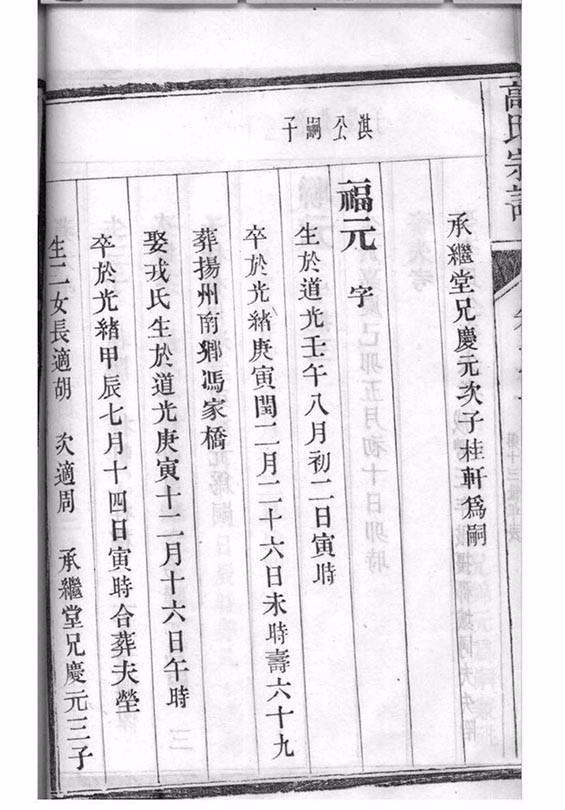 高氏宗譜
承繼堂兄慶元次子桂軒爲嗣
淇公嗣子
福元 字
生於道光壬午八月初二日寅時
卒於光緒庚寅閏二月二十六日未時壽六十九
葬揚州南鄉馮家橋
娶戎氏生於道光庚寅十二月十六日午時
卒於光緒甲辰七月十四日寅時合葬夫塋
生二女長適胡 次適周 承繼堂兄慶元三子